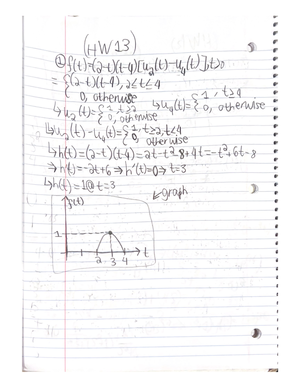 (HW13)
① f(t)=(2-t)(t-4)[u₂(t)-u₄(t)], t>0
= {(2-t)(t-4), 2≤t≤4
0, otherwise
↳ u₂(t)={1, t≥2
0, otherwise
↳ u₄(t)={1, t≥4
0, otherwise
↳ u₂(t)-u₄(t)={1, t≥2, t<4
0, otherwise
↳ h(t)=(2-t)(t-4)=2t-t²-8+4t=-t²+6t-8
⇒ h'(t)=-2t+6 ⇒ h'(t)=0 ⇒ t=3
↳ h(t)=1@t=3
↙graph
f(t)
1
t
2 3 4